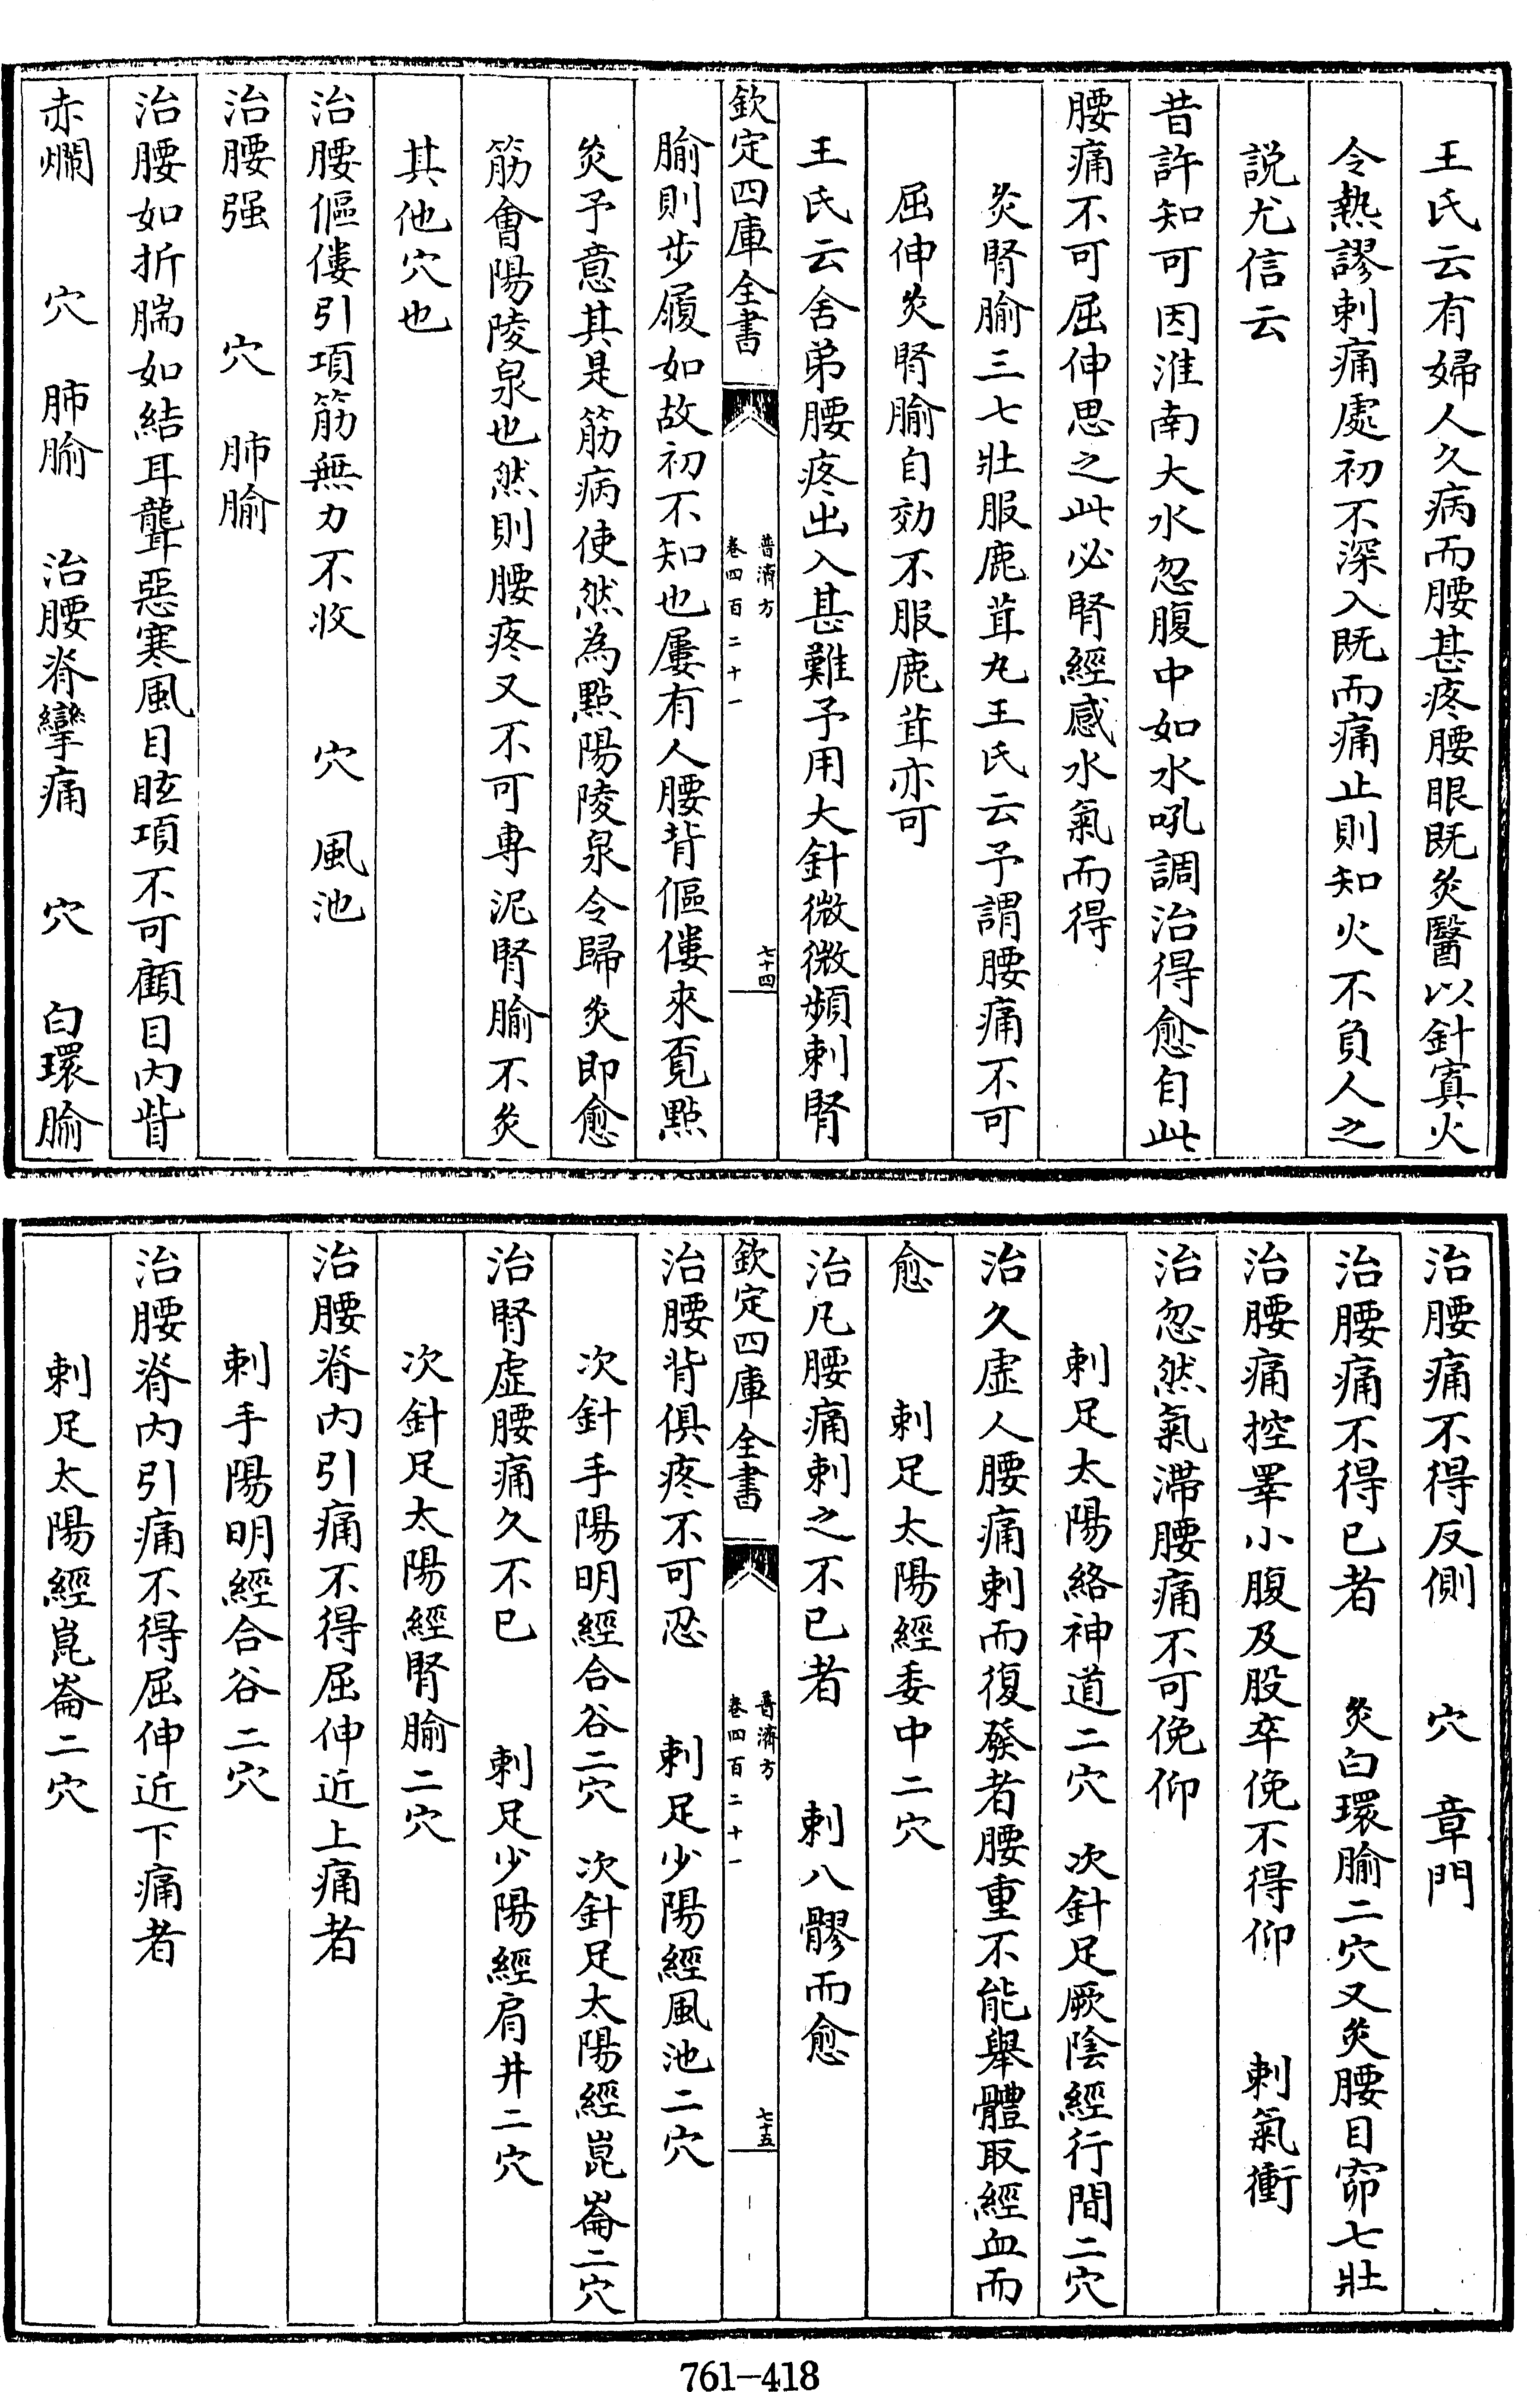 王氏云有婦人久病而腰甚疼腰眼既灸醫以針寘火
令熱謬刺痛處初不深入既而痛止則知火不負人之
説尤信云
昔許知可因淮南大水忽腹中如水吼調治得愈自此
腰痛不可屈伸思之此必腎經感水氣而得
灸腎腧三七壯服鹿茸丸王氏云予謂腰痛不可
屈伸灸腎腧自効不服鹿茸亦可
王氏云舍弟腰疼出入甚難予用大針微微頻刺腎
欽定四庫全書
普濟方
卷四百二十一
七十四
腧則步履如故初不知也屢有人腰背傴僂來覓點
灸予意其是筋病使然為點陽陵泉令歸灸即愈
筋會陽陵泉也然則腰疼又不可專泥腎腧不灸
其他穴也
治腰傴僂引項筋無力不收 穴 風池
治腰强 穴 肺腧
治腰如折腨如結耳聾惡寒風目眩項不可顧目内眥
赤爛 穴 肺腧 治腰脊攣痛 穴 白環腧
治腰痛不得反側 穴 章門
治腰痛不得已者 灸白環腧二穴又灸腰目窌七壯
治腰痛控睪小腹及股卒俛不得仰 刺氣衝
治忽然氣滯腰痛不可俛仰
刺足太陽絡神道二穴 次針足厥陰經行間二穴
治久虛人腰痛刺而復發者腰重不能舉體取經血而
愈 刺足太陽經委中二穴
治凡腰痛刺之不已者 刺八髎而愈
欽定四庫全書
普濟方
卷四百二十一
七十五
治腰背俱疼不可忍 刺足少陽經風池二穴
次針手陽明經合谷二穴 次針足太陽經崑崙二穴
治腎虛腰痛久不已 刺足少陽經肩井二穴
次針足太陽經腎腧二穴
治腰脊内引痛不得屈伸近上痛者
刺手陽明經合谷二穴
治腰脊内引痛不得屈伸近下痛者
刺足太陽經崑崙二穴
761-418